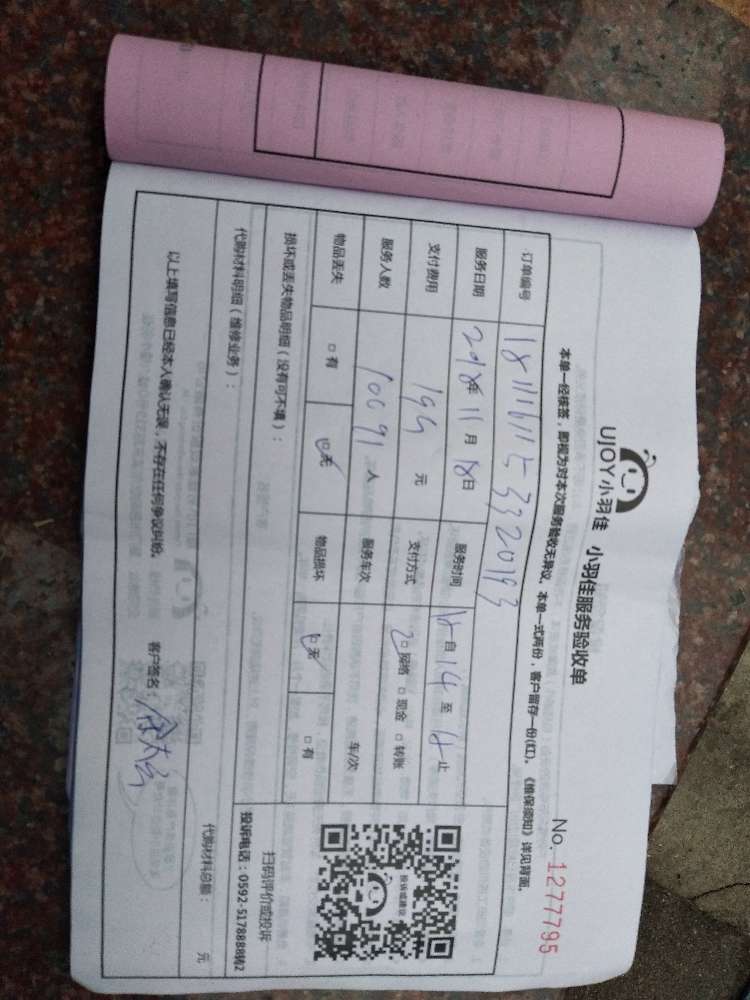 UJOY小羽佳 小羽佳服务验收单
No. 1277795
本单一经核签，即视为对本次服务验收无异议。本单一式两份，客户留存一份(红)。《维保须知》详见背面。
订单编号
服务日期 2018年 11月 18日 服务时间 自 14 至 止
支付费用 元 支付方式 网络 □ 现金 □ 转账
服务人数 10091 人 服务车次 车/次
物品丢失 □ 有 □ 无 物品损坏 □ 无 □ 有
损坏或丢失物品明细（没有可不填）：
投诉或建议
扫码评价或投诉
投诉电话：0592-5178888转2
代购材料明细（维修业务）：
代购材料总额： 元
以上填写信息已经本人确认无误，不存在任何争议纠纷。 客户签名：